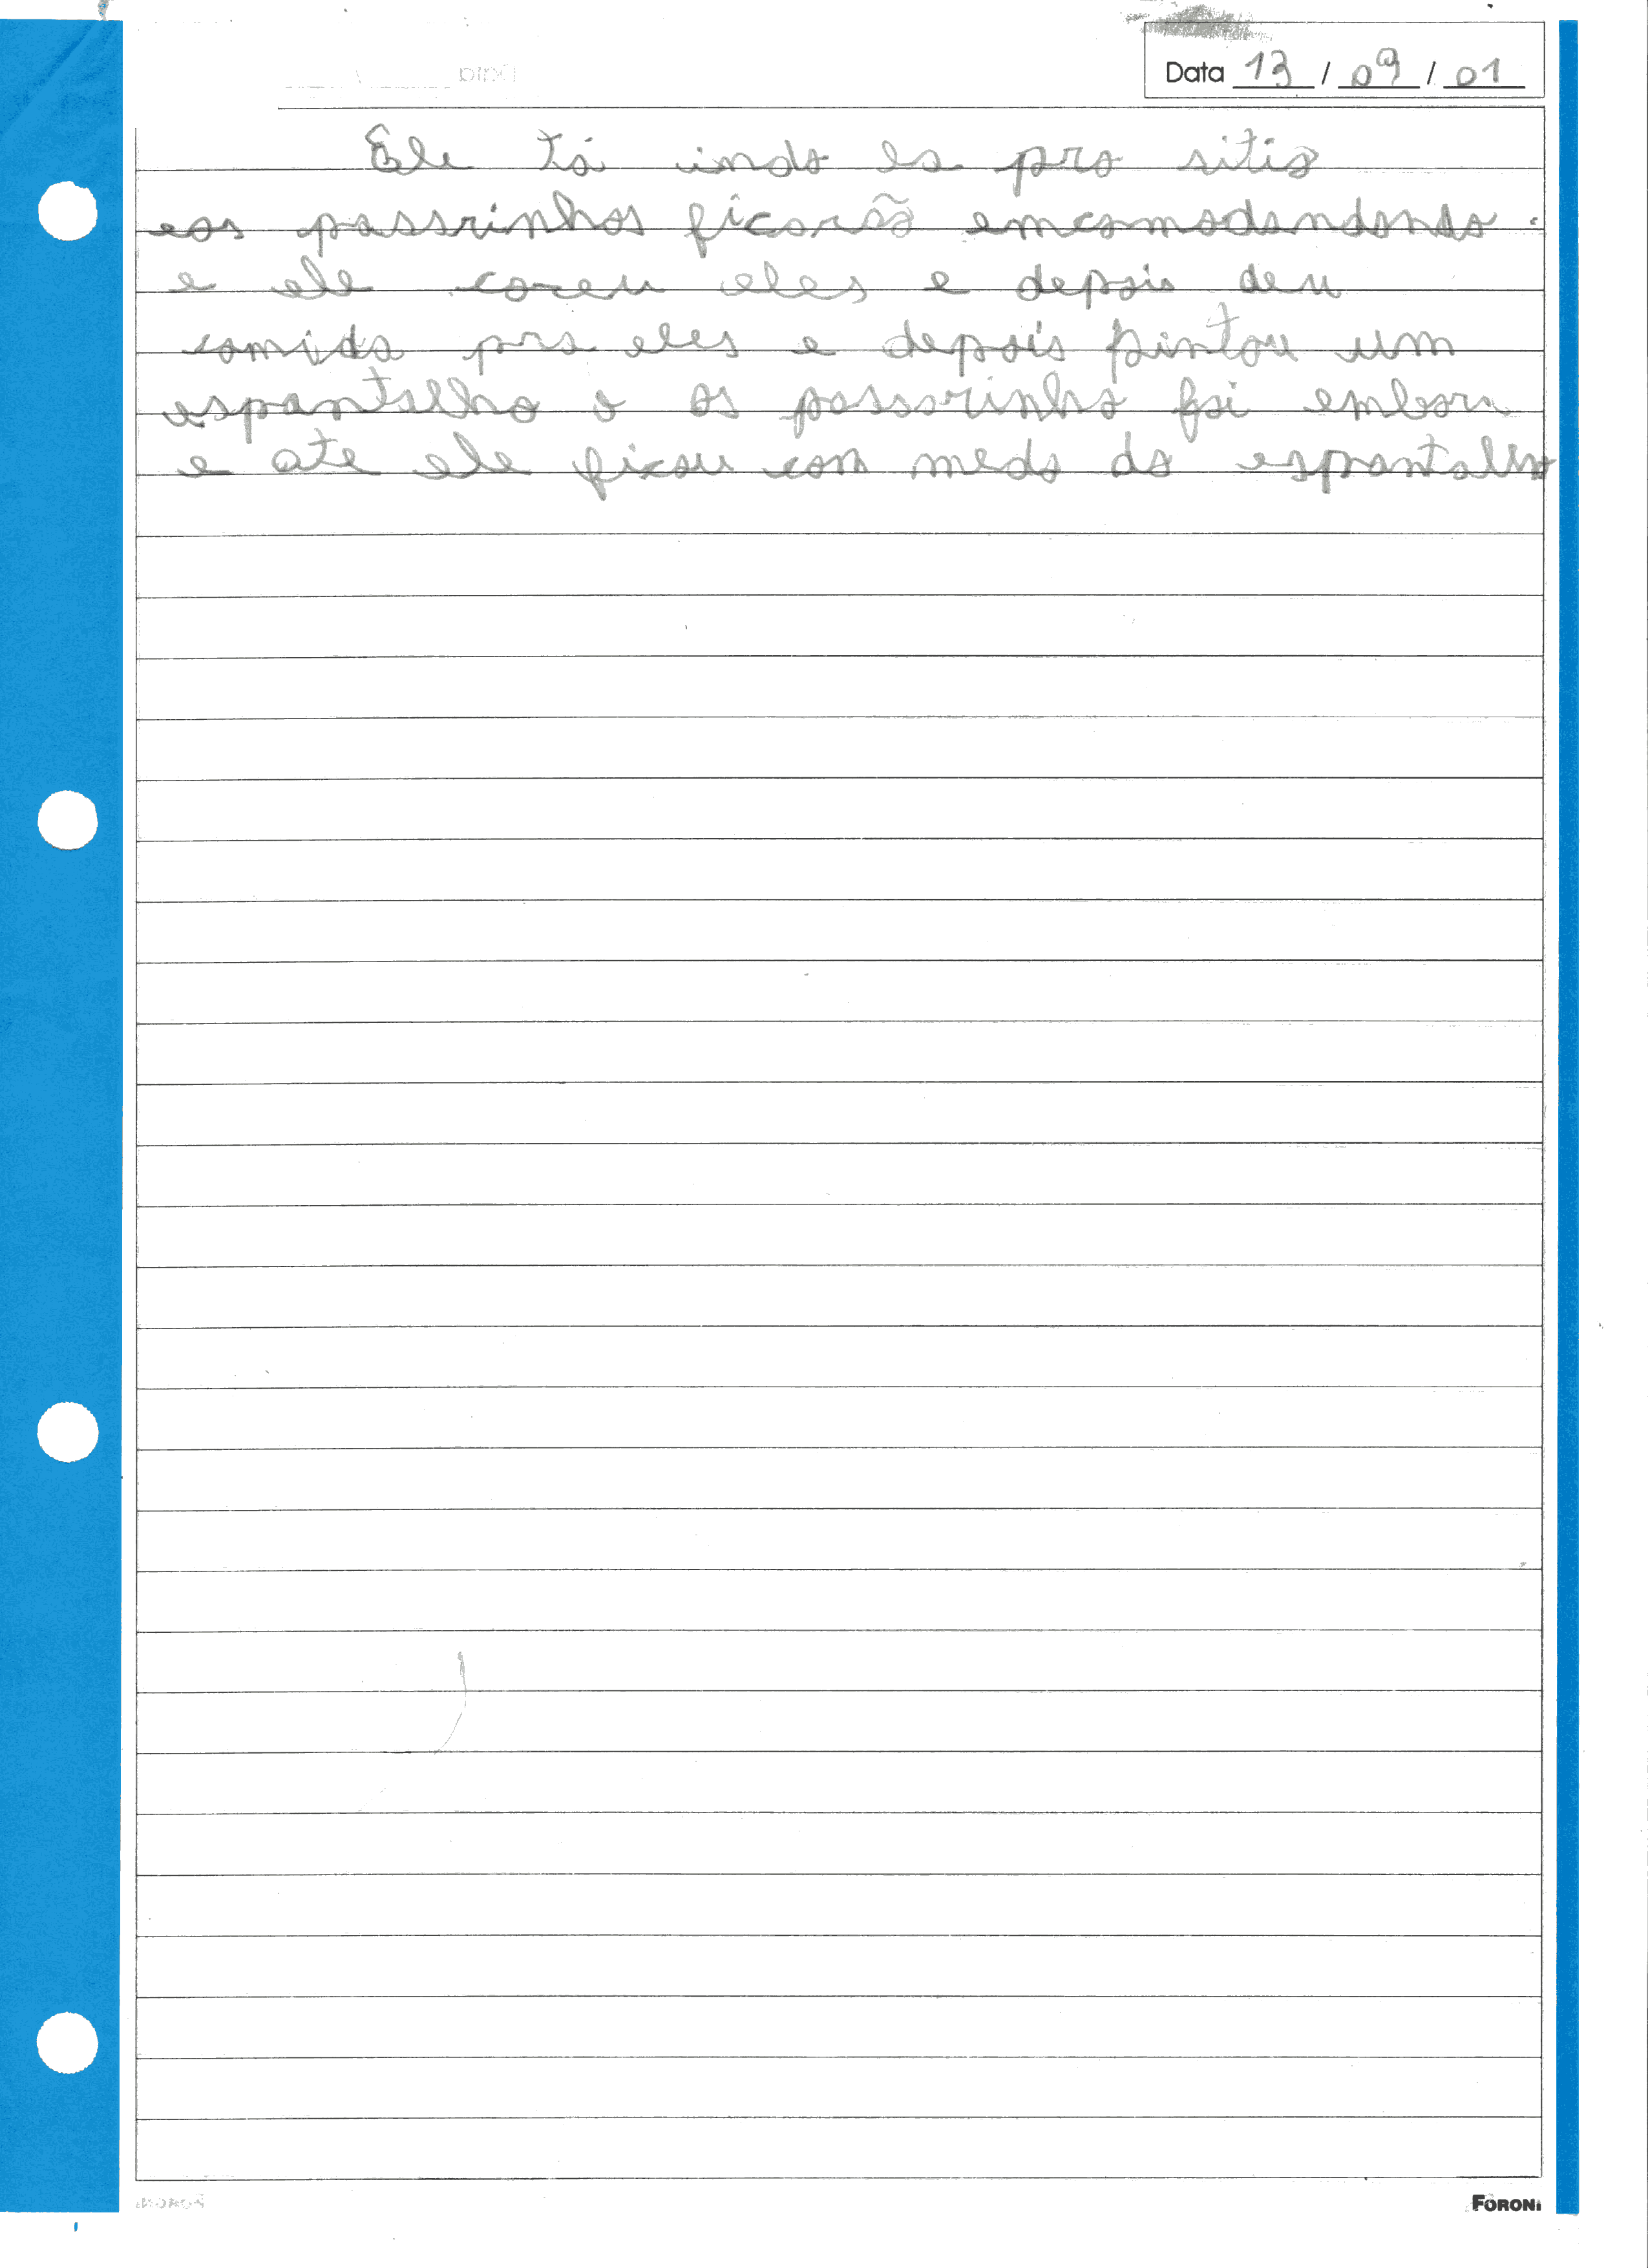 Data 13 / 09 / 01
Ele tá indo la pro sitio
eos passrinhos ficarão emcomodandondo.
e ele coreu eles e depois deu
comida pra eles e depois pintou um
espantalho o os passarinho foi embora
e ate ele ficou com medo do espantalho
FORONI